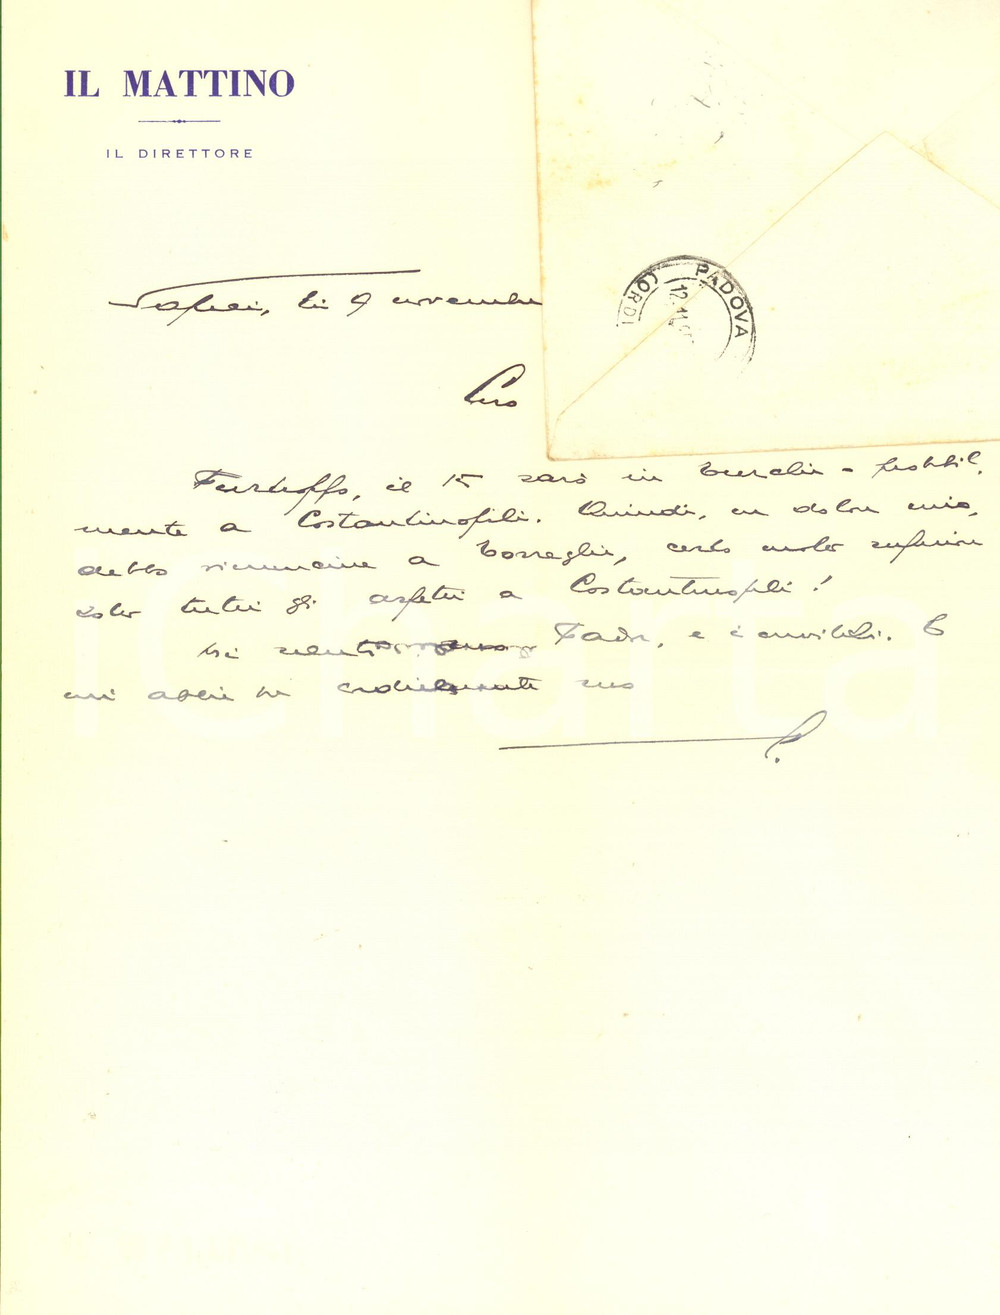 IL MATTINO
IL DIRETTORE
Napoli, li 9 novembre
PADOVA
12.11
CORDI
Caro
Purtroppo, il 15 sarò in Turchia - probabil
mente a Costantinopoli. Quindi, con dolore mio,
debbo rinunciare a Torreglia, certo molto superiore
sotto tutti gli aspetti a Costantinopoli!
Mi saluti Fada, e E
mi abbia cordialmente suo